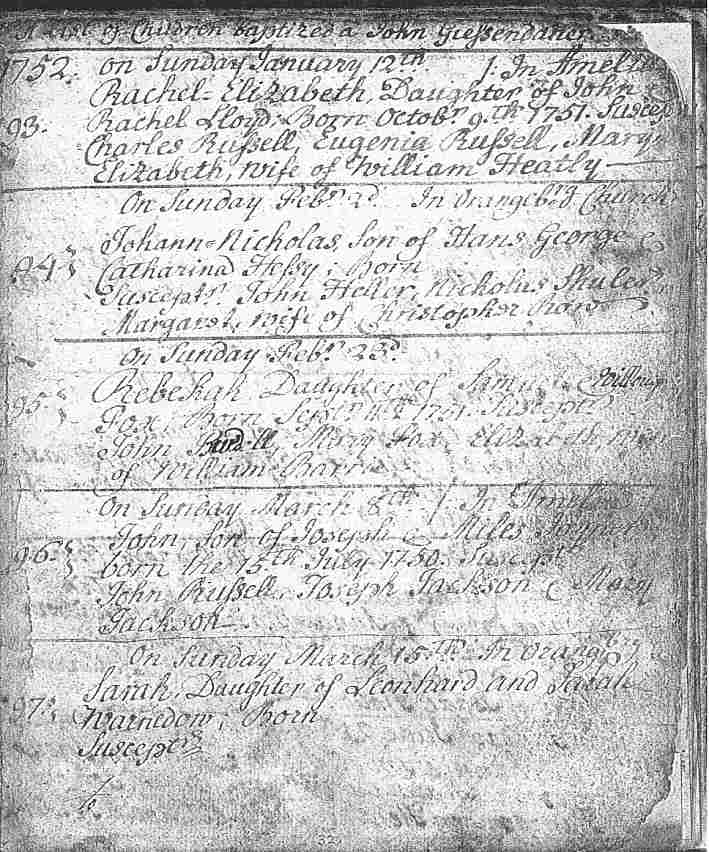 A List of Children baptized a John Giessendanner
1752. on Sunday January 12th. /. In Amel
Rachel=Elizabeth, Daughter of John &
93. Rachel Lloyd; Born Octobr. 9.th 1751. Suscep
Charles Russell, Eugenia Russell, Mary=
Elizabeth, wife of William Heatly
On Sunday Febr. 2d. In Orangeb:g Church
Johann=Nicholas, Son of Hans George &
94. Catharina Hessy; Born
Susceptrs. John Heller, Nicholas Shuler,
Margaret, wife of Christopher Row
on Sunday Febr. 23d.
Rebekah Daughter of &
95. Fox, Born Septr. 1751. Suscept
John Fox, Elizabeth wife
of William Barrie
On Sunday March 8th. /. In Amel
John, Son of Joseph & Miles
96. born the 15th July 1750. Suscept
John Russell, Joseph Jackson & Mary
Jackson.
On Sunday March 15th. In Orangb:g
Sarah, Daughter of Leonhard and Sarah
97. Warnedow; Born
Susceptrs